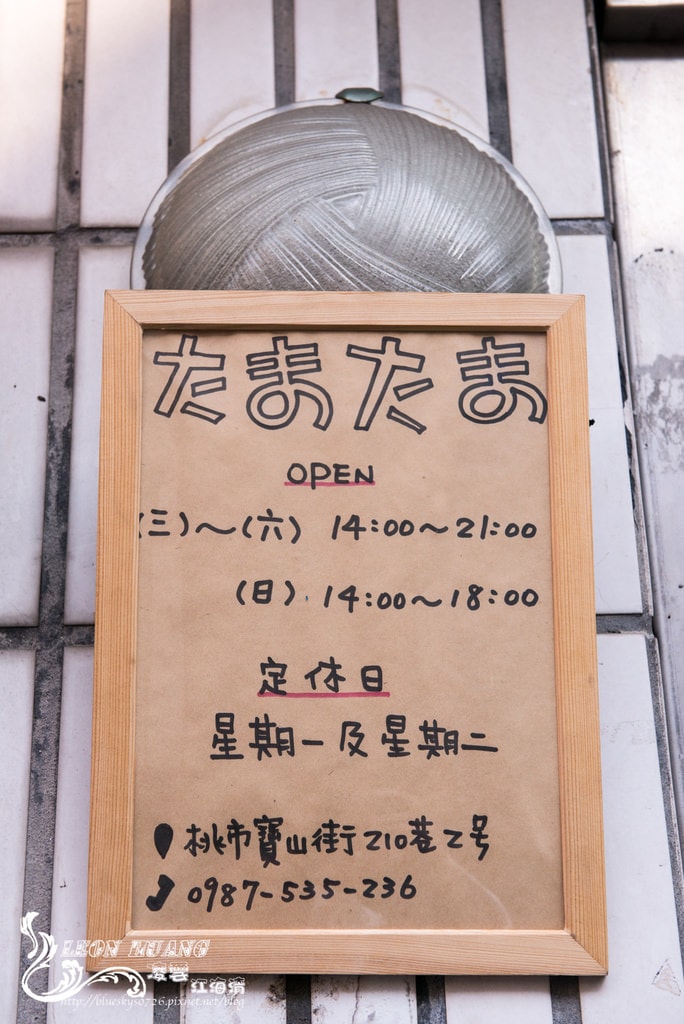 たまたま
OPEN
(三)～(六) 14:00～21:00
(日) 14:00～18:00
定休日
星期一及星期二
桃市寶山街210巷2号
0987-535-236
LEON HUANG
凌雲江海清
http://bluesky50726.pixnet.net/blog